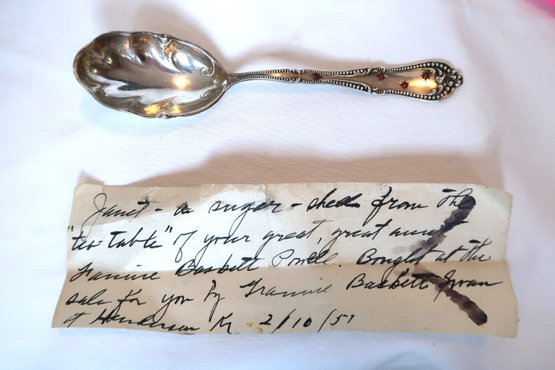 Janet - a sugar - shell from the
"tea table" of your great, great aunt
Fannie Baskett Powell. Bought at the
sale for you by Fannie Baskett
at Henderson Ky 2/10/51